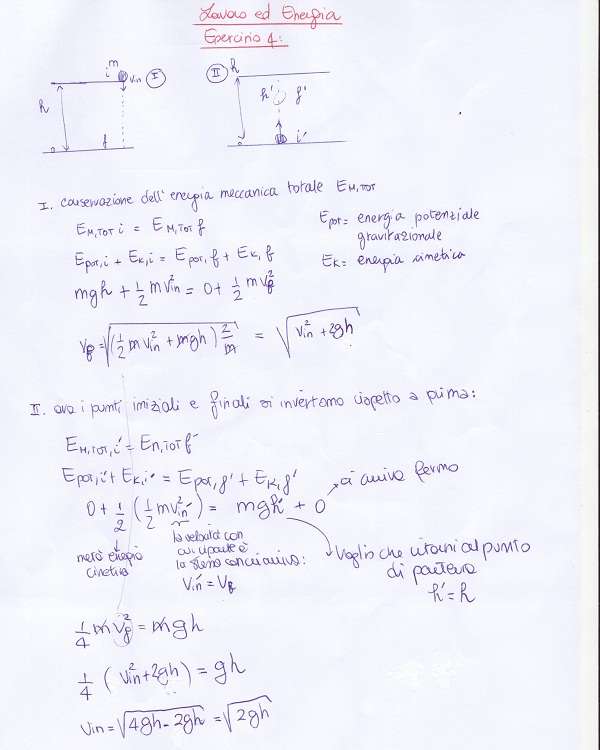 Lavoro ed Energia
Esercizio 4:
m
i
vin
I
h
0
f
II
h
h' f'
0
i'
I. conservazione dell'energia meccanica totale EM,TOT
EM,TOT i = EM,TOT f
Epot,i + EK,i = Epot,f + EK,f
mgh + 1/2 m vin² = 0 + 1/2 m vf²
Epot = energia potenziale
gravitazionale
EK = energia cinetica
vf = √((1/2 m vin² + mgh) 2/m) = √(vin² + 2gh)
II. ora i punti iniziali e finali si invertono rispetto a prima:
EM,TOT,i' = EM,TOT f'
Epot,i' + EK,i' = Epot,f' + EK,f'
0 + 1/2 (1/2 m vin'²) = mgh' + 0
ci arriva fermo
metà energia
cinetica
la velocità con
cui riparte è
la stessa con cui arriva:
vin' = vf
Voglio che ritorni al punto
di partenza
h' = h
1/4 m vf² = mgh
1/4 (vin² + 2gh) = gh
vin = √(4gh - 2gh) = √(2gh)